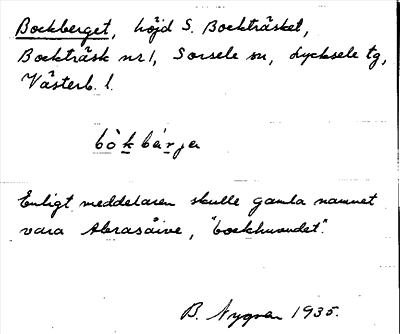 Bockberget, höjd S. Bockträsket,
Bockträsk nr 1, Sorsele sn, Lycksele tg,
Västerb. l.
bòkbárja
Enligt meddelaren skulle gamla namnet
vara Abrasåive, "bockhuvudet".
B. Nygren 1935.